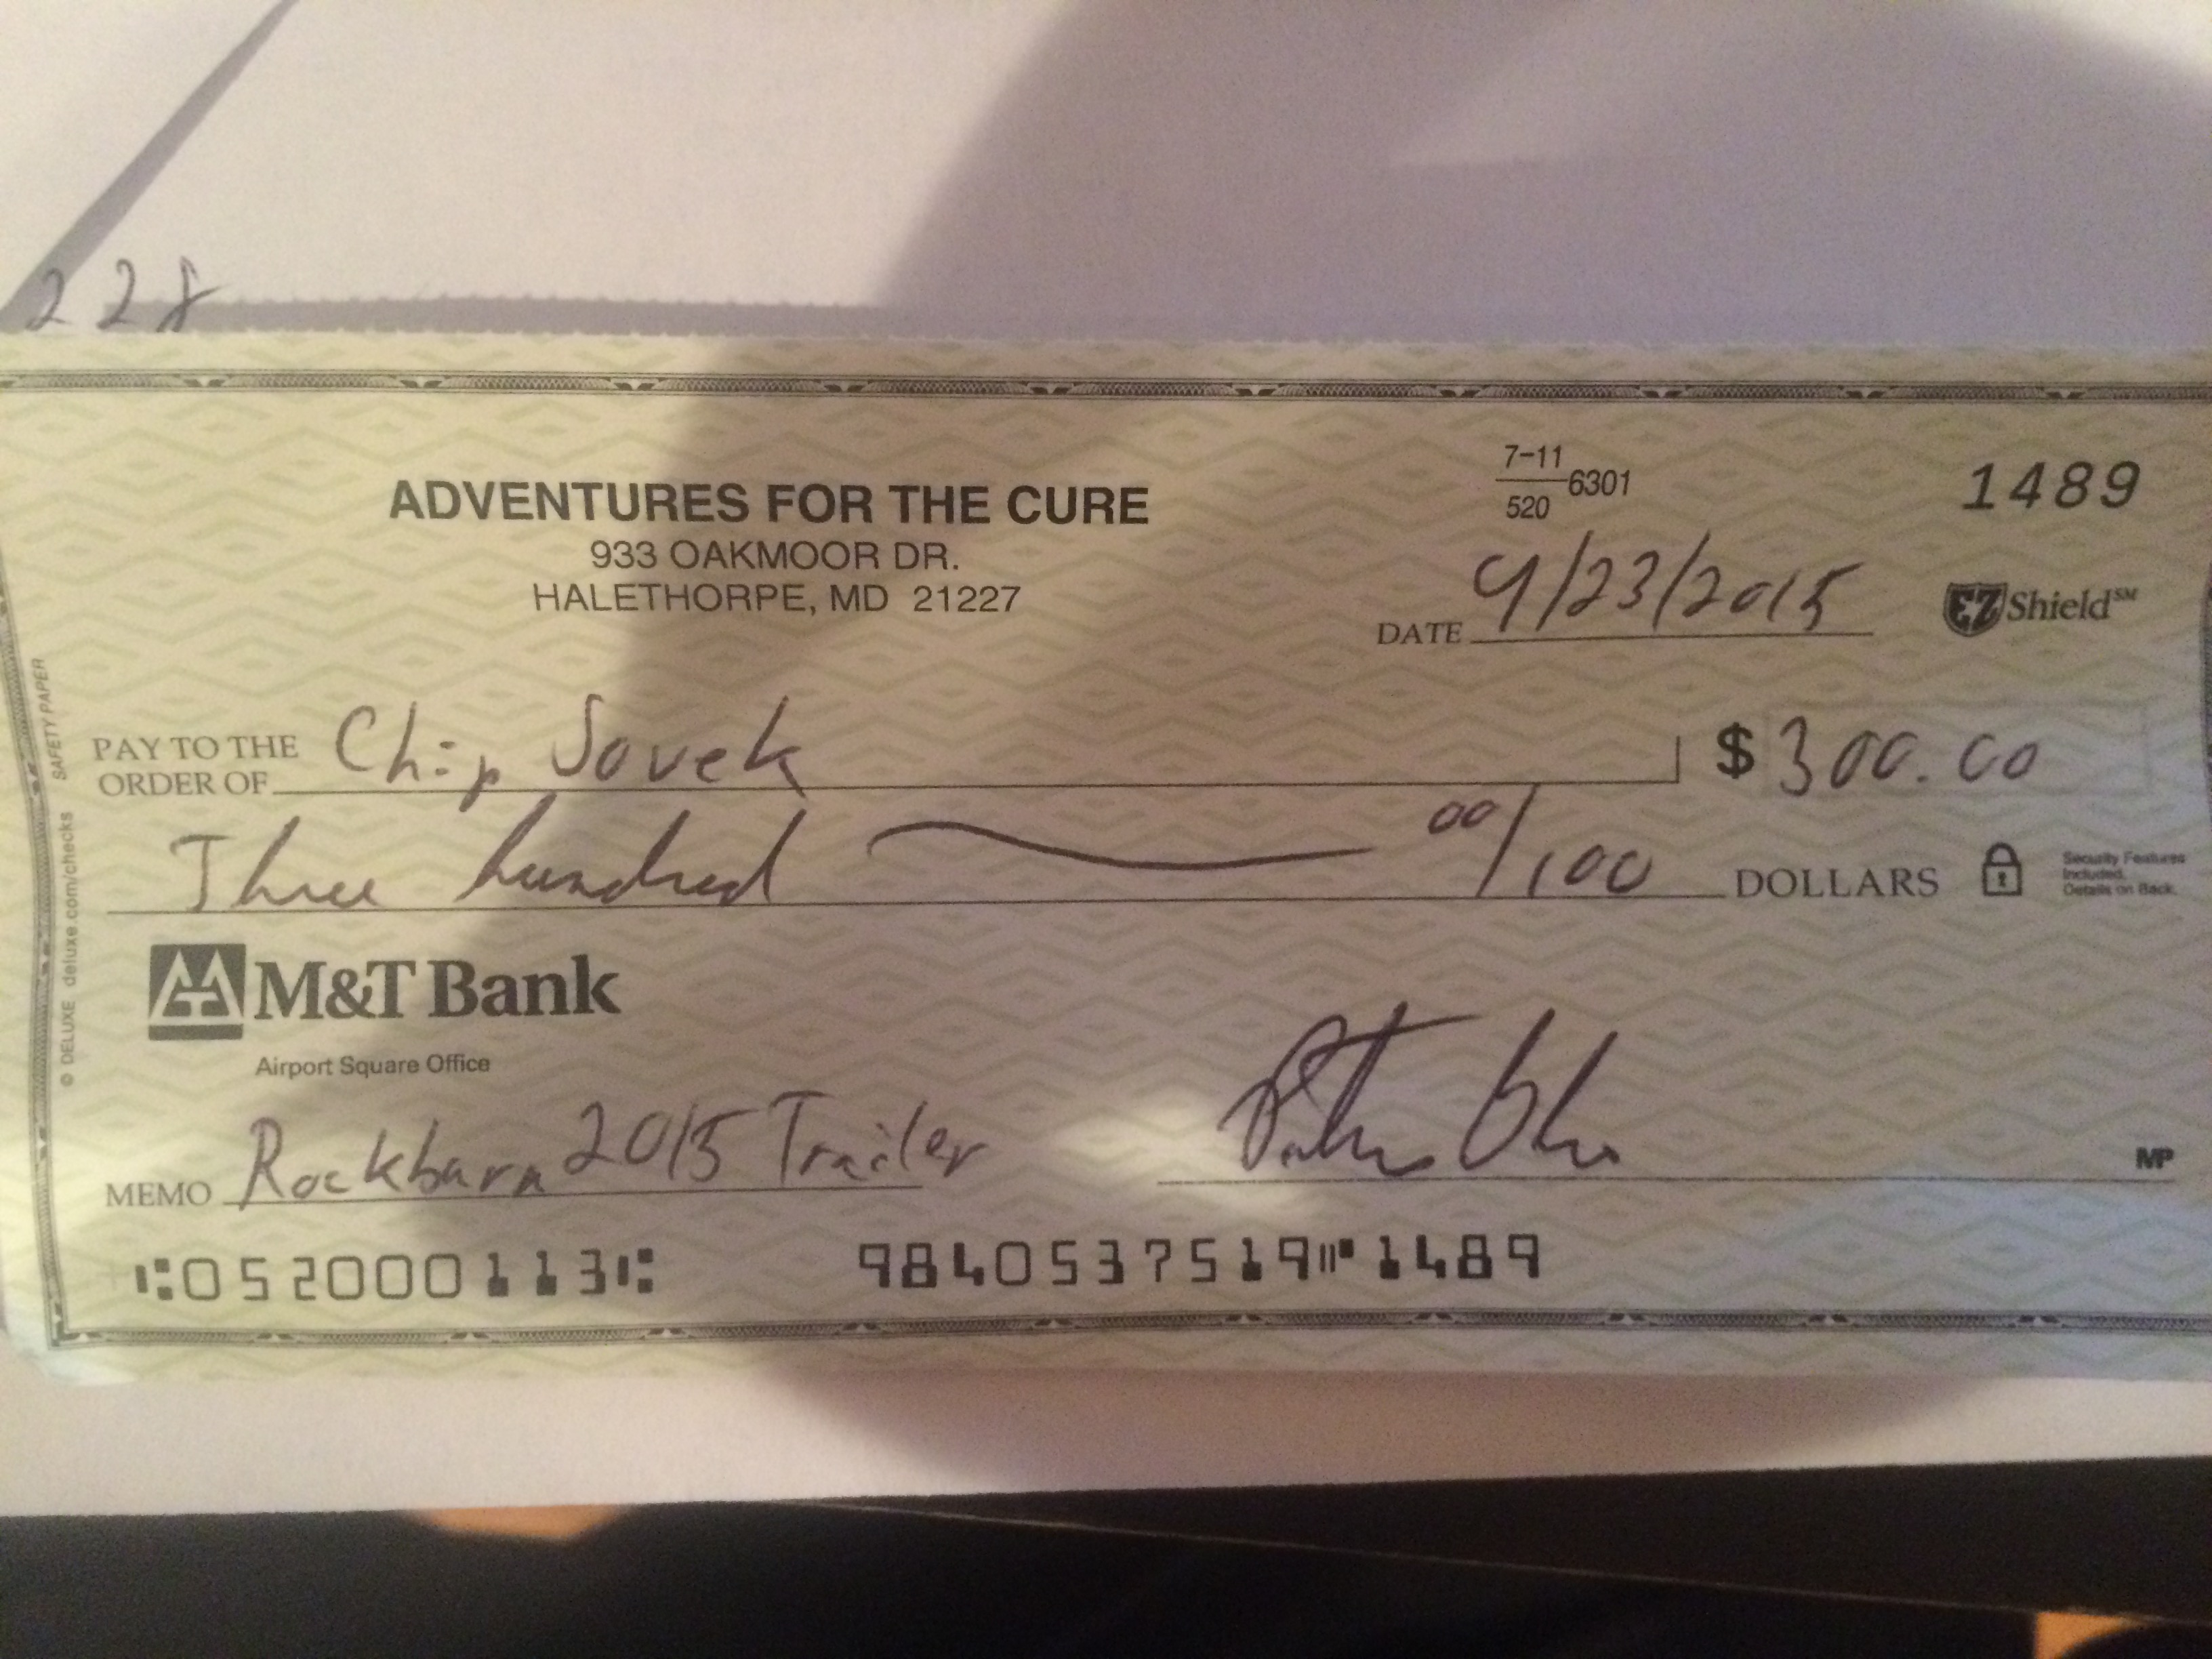 228
ADVENTURES FOR THE CURE
933 OAKMOOR DR.
HALETHORPE, MD 21227
7-11
520
6301
1489
DATE 9/23/2015
EZ Shield SM
PAY TO THE ORDER OF Chip Sovek $ 300.00
Three hundred 00/100 DOLLARS
Security Features
Included.
Details on Back.
SAFETY PAPER
© DELUXE deluxe.com/checks
M&T Bank
Airport Square Office
MEMO Rockburn 2015 Trailer
MP
⑆052000113⑆ 9840537519⑈1489